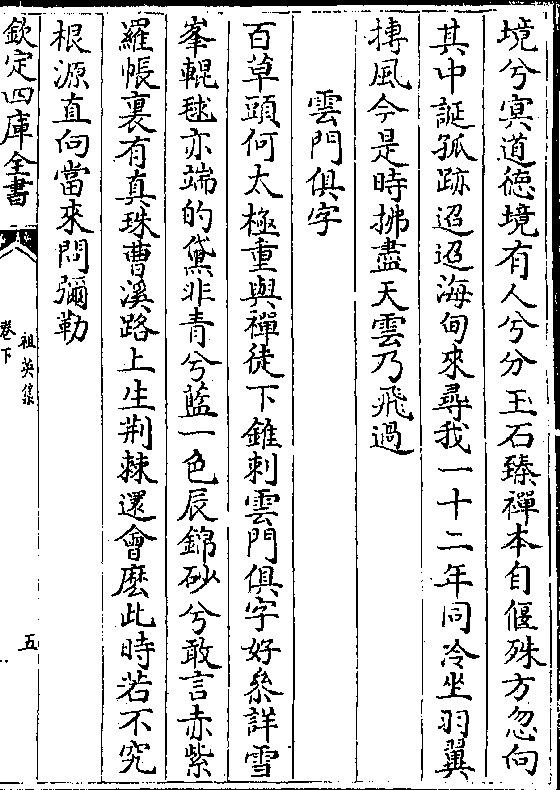 境兮㝠道德境有人兮分玉石臻禪本自偃殊方忽向
其中誕孤跡迢迢海甸來尋我一十二年同冷坐羽翼
摶風今是時拂盡天雲乃飛過
雲門俱字
百草頭何太極重與禪徒下錐刺雲門俱字好叅詳雪
峯輥毬亦端的黛非青兮藍一色辰錦砂兮敢言赤紫
羅帳裏有真珠曹溪路上生荆棘還會麽此時若不究
根源直向當來問彌勒
欽定四庫全書
祖英集
卷下
五